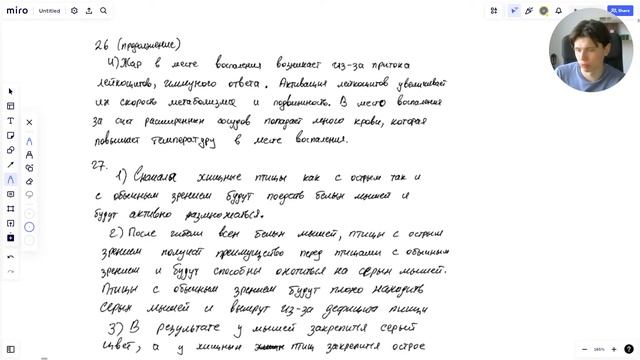 miro
Untitled
Share
26 (продолжение)
4) Жар в месте воспаления возникает из-за притока
лейкоцитов, иммунного ответа. Активация лейкоцитов увеличивает
их скорость метаболизма и подвижность. В место воспаления
за счет расширенных сосудов попадает много крови, которая
повышает температуру в месте воспаления.
27.
1) Сначала хищные птицы как с острым так и
с обычным зрением будут поедать белых мышей и
будут активно размножаться.
2) После гибели всех белых мышей, птицы с острым
зрением получат преимущество перед птицами с обычным
зрением и будут способны охотиться на серых мышей.
Птицы с обычным зрением будут плохо находить
серых мышей и вымрут из-за дефицита пищи
3) В результате у мышей закрепится серый
цвет, а у хищных птиц закрепится острое
165%